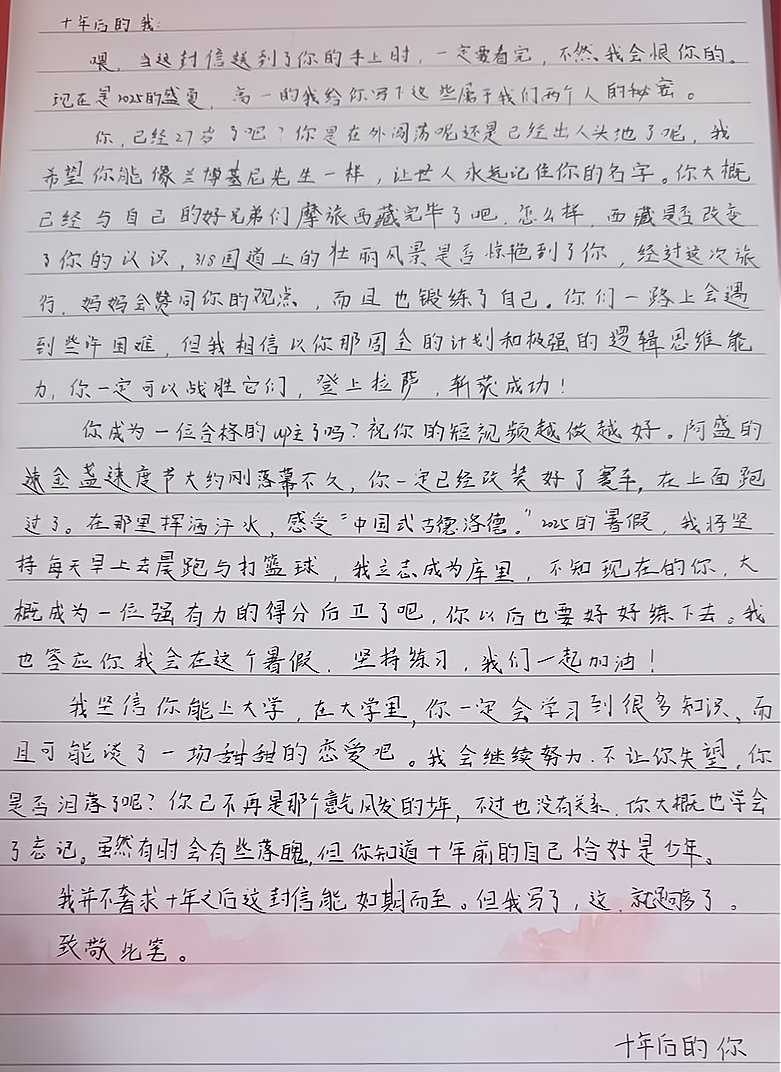 十年后的我:
喂，当这封信送到了你的手上时，一定要看完，不然我会恨你的。
现在是2025的盛夏，高一的我给你写下这些属于我们两个人的秘密。
你，已经27岁了吧？你是在外闯荡呢还是已经出人头地了呢，我
希望你能像兰博基尼先生一样，让世人永远记住你的名字。你大概
已经与自己的好兄弟们摩旅西藏完毕了吧，怎么样，西藏是否改变
了你的认识，318国道上的壮丽风景是否惊艳到了你，经过这次旅
行，妈妈会赞同你的观点，而且也锻练了自己。你们一路上会遇
到些许困难，但我相信以你那周全的计划和极强的逻辑思维能
力，你一定可以战胜它们，登上拉萨，斩获成功！
你成为一位合格的up主了吗？祝你的短视频越做越好。阿盛的
速金盏速度节大约刚落幕不久，你一定已经改装好了赛车，在上面跑
过了。在那里挥洒汗水，感受“中国式古德洛德。”2025的暑假，我将坚
持每天早上去晨跑与打篮球，我立志成为库里，不知现在的你，大
概成为一位强有力的得分后卫了吧，你以后也要好好练下去。我
也答应你我会在这个暑假，坚持练习，我们一起加油！
我坚信你能上大学，在大学里，你一定会学习到很多知识、而
且可能谈了一场甜甜的恋爱吧。我会继续努力，不让你失望，你
是否泪落了呢？你已不再是那个意气风发的少年，不过也没有关系，你大概也学会
了忘记。虽然有时会有些落魄，但你知道十年前的自己恰好是少年。
我并不奢求十年之后这封信能如期而至。但我写了，这，就足够了。
致敬此笔。
十年后的你